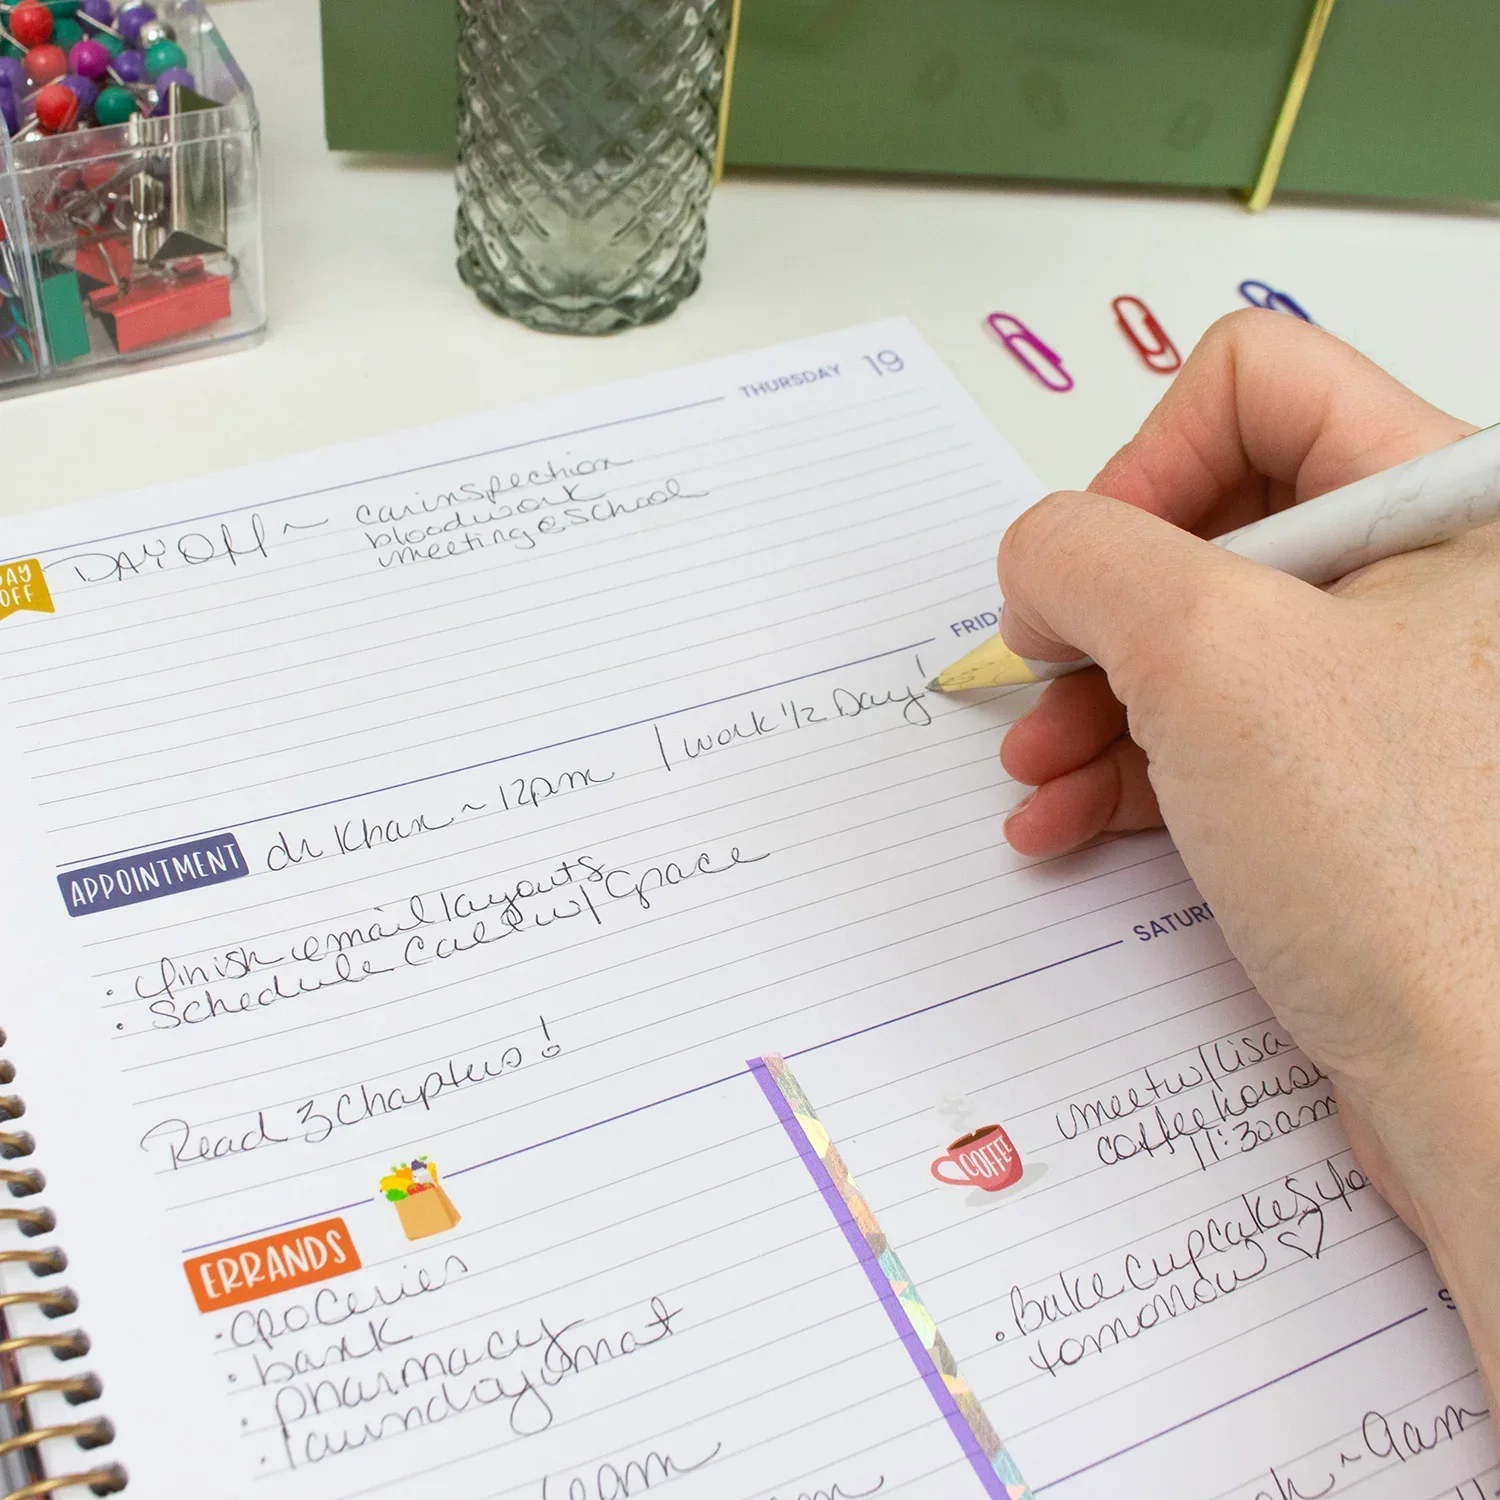 THURSDAY 19
DAY OFF
DAY OFF ~ car inspection
bloodwork
meeting @ school
FRIDA
APPOINTMENT
dr Khan ~ 12pm / work 1/2 Day!
• finish email layouts
• schedule call w/ Grace
Read 3 chapters!
SATUR
ERRANDS
• groceries
• bank
• pharmacy
• laundry mat
COFFEE
meet w/ Lisa
coffee hous
11:30am
• Bake cupcakes fo
tomorrow ♡
S
~ 9am